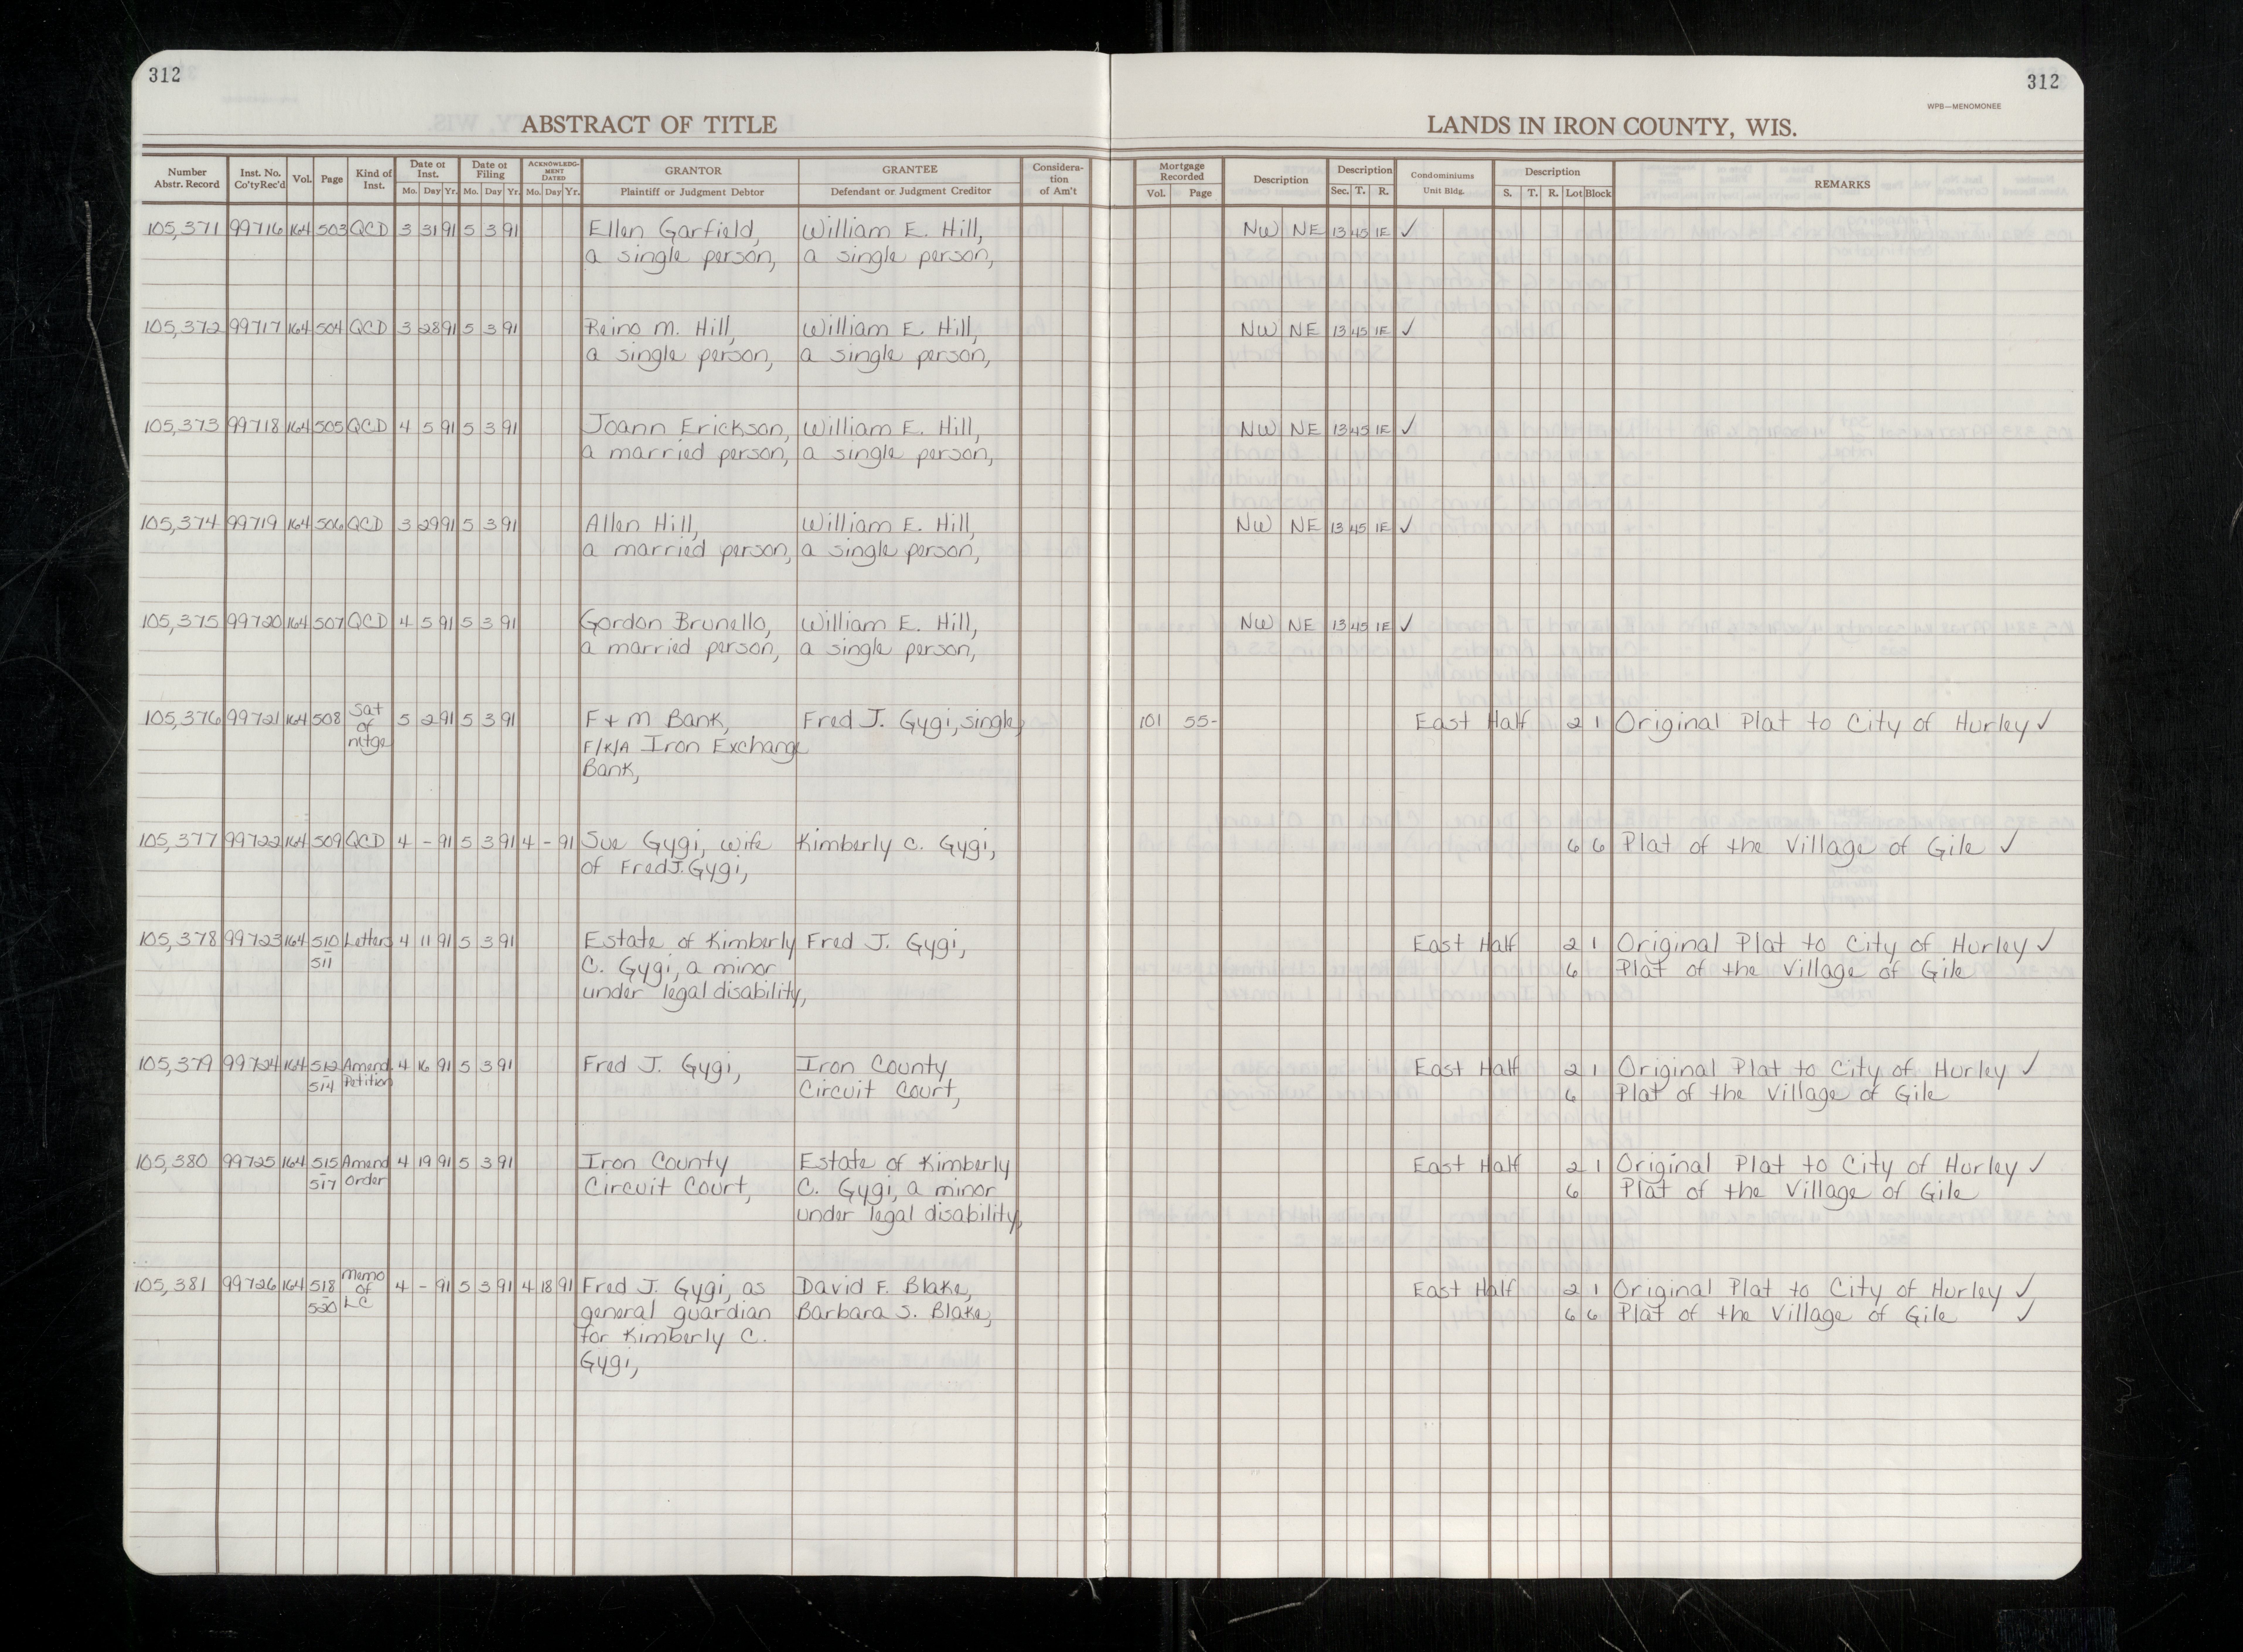 312
312
WPB—MENOMONEE
ABSTRACT OF TITLE
LANDS IN IRON COUNTY, WIS.
Number Abstr. Record | Inst. No. Co'tyRec'd | Vol. | Page | Kind of Inst. | Date of Inst. Mo. Day Yr. | Date of Filing Mo. Day Yr. | ACKNOWLEDGMENT DATED Mo. Day Yr. | GRANTOR Plaintiff or Judgment Debtor | GRANTEE Defendant or Judgment Creditor | Consideration of Am't | Mortgage Recorded Vol. Page | Description | Description Sec. T. R. | Condominiums Unit Bldg. | Description S. T. R. Lot Block | REMARKS
105,371 99716 164 503 QCD 3 31 91 5 3 91 Ellen Garfield, William E. Hill, NW NE 13 45 1E ✓
a single person, a single person,
105,372 99717 164 504 QCD 3 28 91 5 3 91 Reino M. Hill, William E. Hill, NW NE 13 45 1E ✓
a single person, a single person,
105,373 99718 164 505 QCD 4 5 91 5 3 91 Joann Erickson, William E. Hill, NW NE 13 45 1E ✓
a married person, a single person,
105,374 99719 164 506 QCD 3 29 91 5 3 91 Allen Hill, William E. Hill, NW NE 13 45 1E ✓
a married person, a single person,
105,375 99720 164 507 QCD 4 5 91 5 3 91 Gordon Brunello, William E. Hill, NW NE 13 45 1E ✓
a married person, a single person,
105,376 99721 164 508 Sat of mtge 5 2 91 5 3 91 F + M Bank, Fred J. Gygi, single, 101 55- East Half 2 1 Original Plat to City of Hurley ✓
F/K/A Iron Exchange
Bank,
105,377 99722 164 509 QCD 4 - 91 5 3 91 4 - 91 Sue Gygi, wife Kimberly C. Gygi, 6 6 Plat of the Village of Gile ✓
of Fred J. Gygi,
105,378 99723 164 510 - 511 Letters 4 11 91 5 3 91 Estate of Kimberly Fred J. Gygi, East Half 2 1 Original Plat to City of Hurley ✓
C. Gygi, a minor 6 Plat of the Village of Gile
under legal disability,
105,379 99724 164 512 - 514 Amend Petition 4 16 91 5 3 91 Fred J. Gygi, Iron County East Half 2 1 Original Plat to City of Hurley ✓
Circuit Court, 6 Plat of the Village of Gile
105,380 99725 164 515 - 517 Amend Order 4 19 91 5 3 91 Iron County Estate of Kimberly East Half 2 1 Original Plat to City of Hurley ✓
Circuit Court, C. Gygi, a minor 6 Plat of the Village of Gile
under legal disability,
105,381 99726 164 518 - 520 Memo of LC 4 - 91 5 3 91 4 18 91 Fred J. Gygi, as David F. Blake, East Half 2 1 Original Plat to City of Hurley ✓
general guardian Barbara S. Blake, 6 6 Plat of the Village of Gile ✓
for Kimberly C.
Gygi,